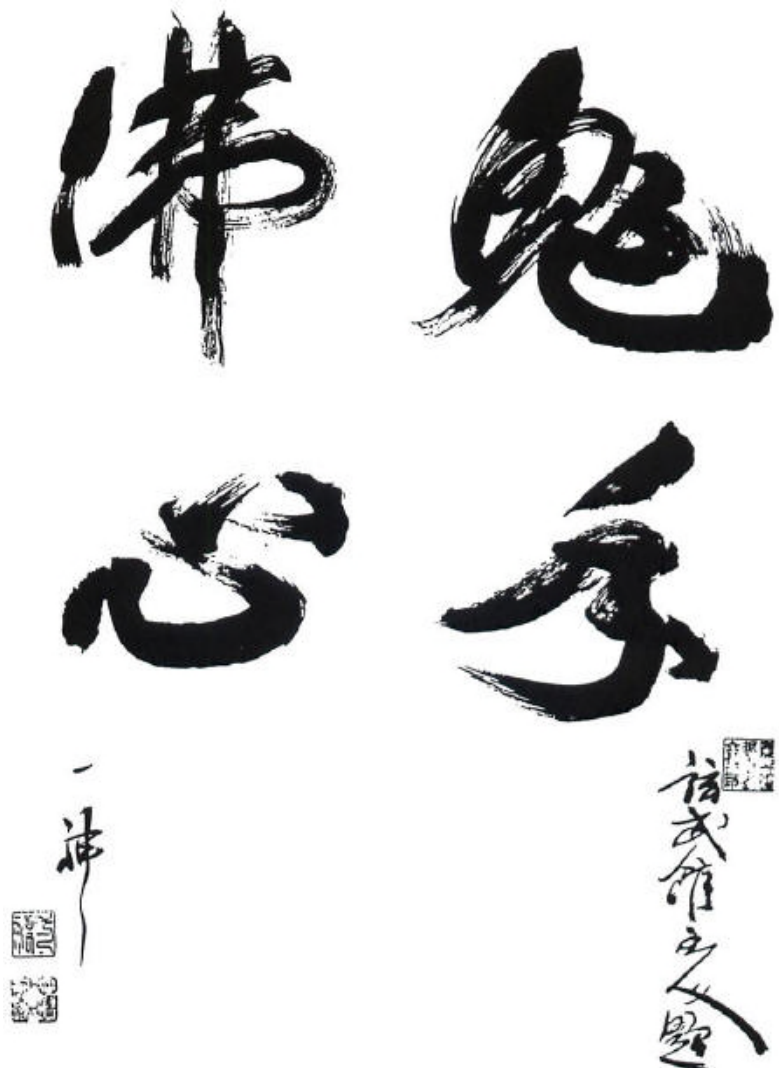 鬼手
佛心
武館主人題
一神